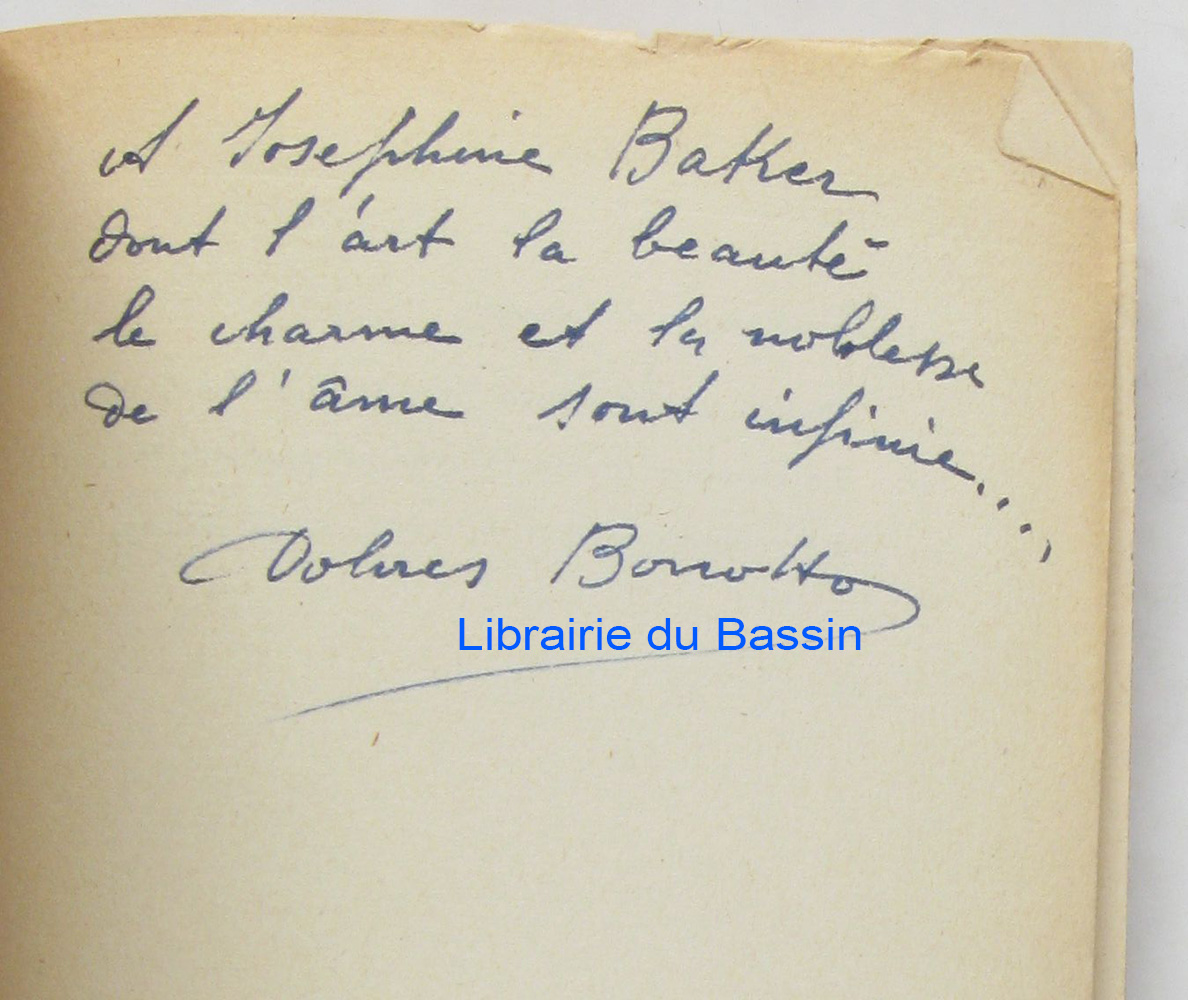 A Josephine Baker
dont l'art la beauté
le charme et la noblesse
de l'âme sont infinie....
Dolores Bonotto
Librairie du Bassin